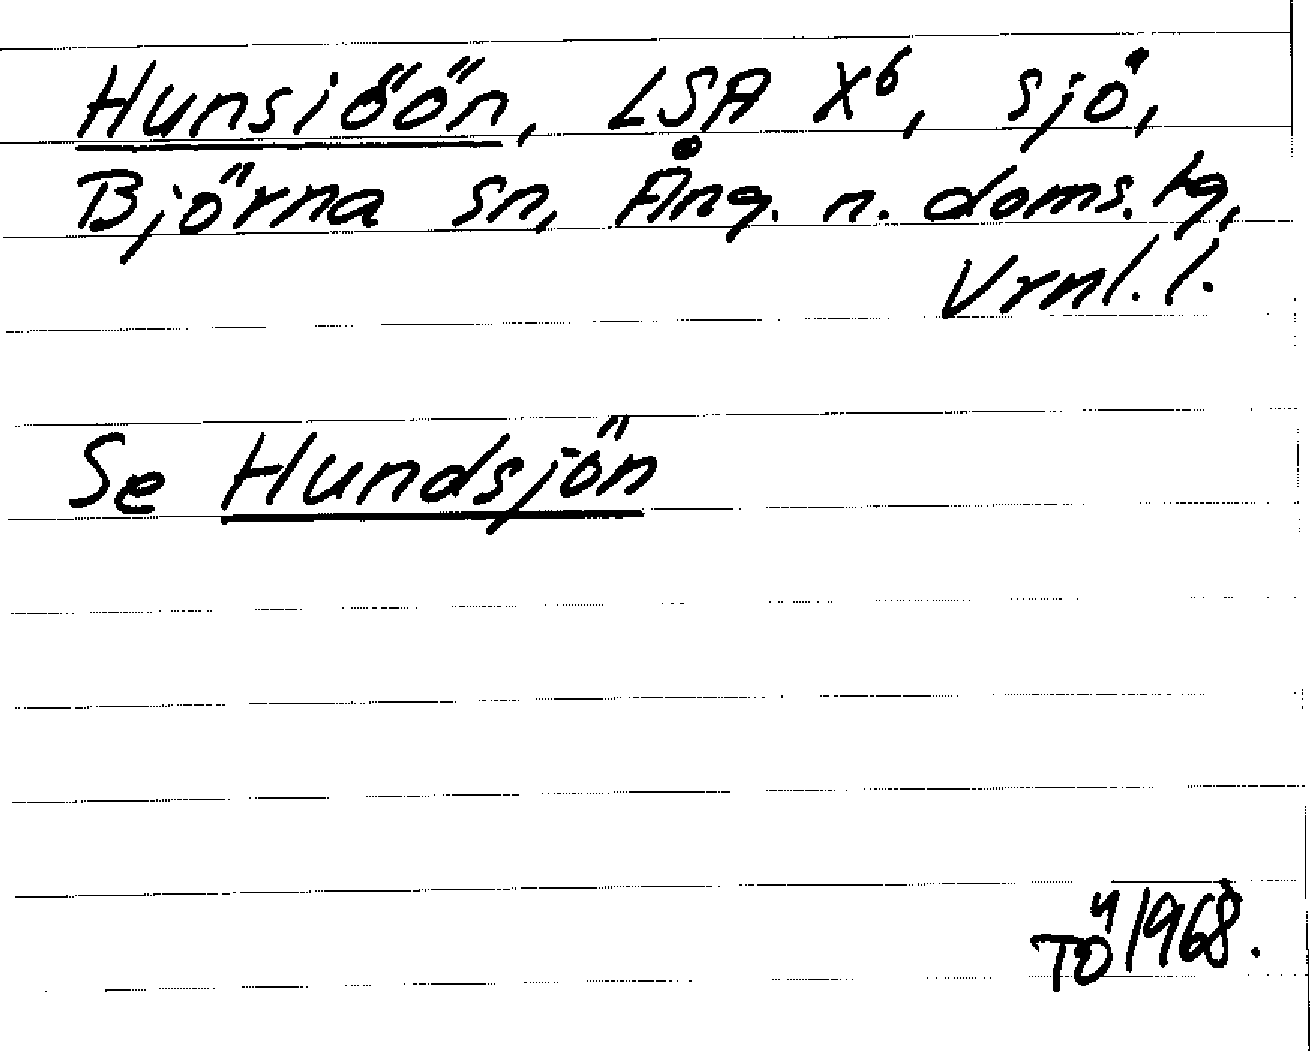 Hunsiöön, LSA X⁶, sjö,
Björna sn, Ång. n. doms. tg,
Vrml. l.
Se Hundsjön
TÖ 1968.